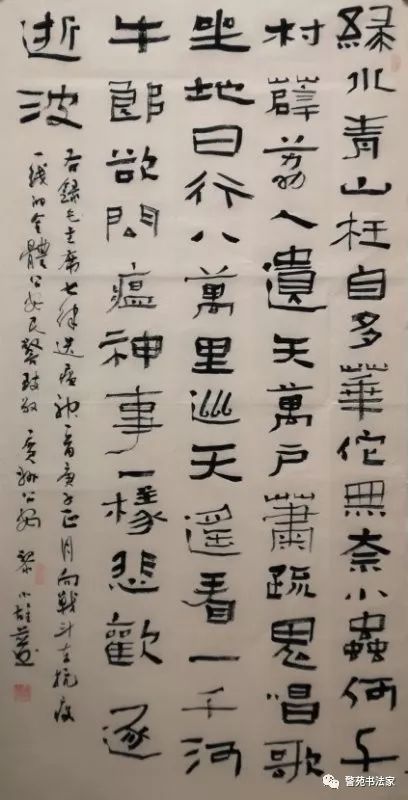 緑水青山枉自多華佗無奈小蟲何千
村薜荔人遺矢萬戶蕭疏鬼唱歌
坐地日行八萬里巡天遥看一千河
牛郎欲問瘟神事一樣悲歡逐
逝波
右録毛主席七律送瘟神一首庚子正月向戰斗在抗疫
一线的全體公安民警致敬 公安 黎小雄
警苑书法家